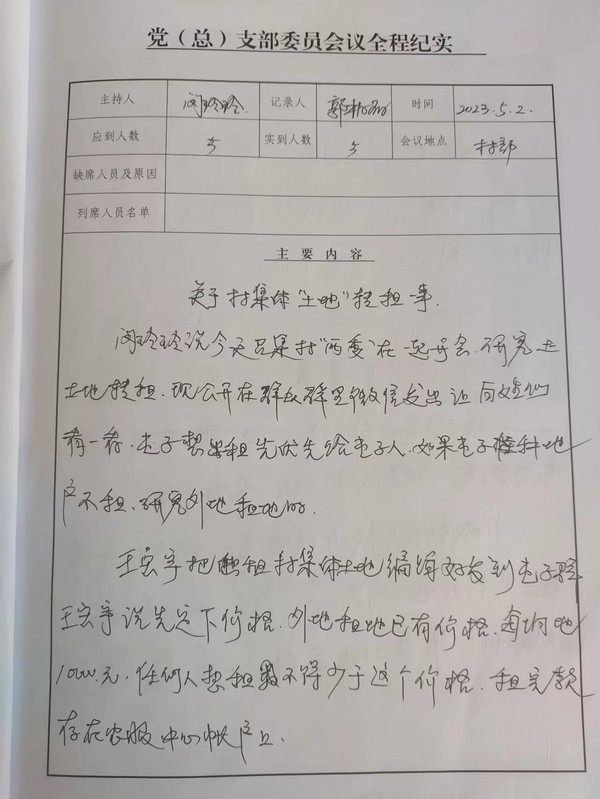 党（总）支部委员会议全程纪实
主持人 闵玲玲 记录人 时间 2023.5.2.
应到人数 5 实到人数 5 会议地点 村部
缺席人员及原因
列席人员名单
主要内容
关于村集体“土地”转租一事.
闵玲玲说今天召集村“两委”在一起开会.研究
土地转租.现公开在群众群里微信发出让
看一看.屯子想租先优先给屯子人.如果屯子种地
户不租、研究外地租地的.
王宏宇把 租村集体土地编辑好发到屯子群
王宏宇说先定下价格.外地租地已有价格.每垧地
1000.元.任何人想租 不得少于这个价格.租完款
存在农服中心帐户上.